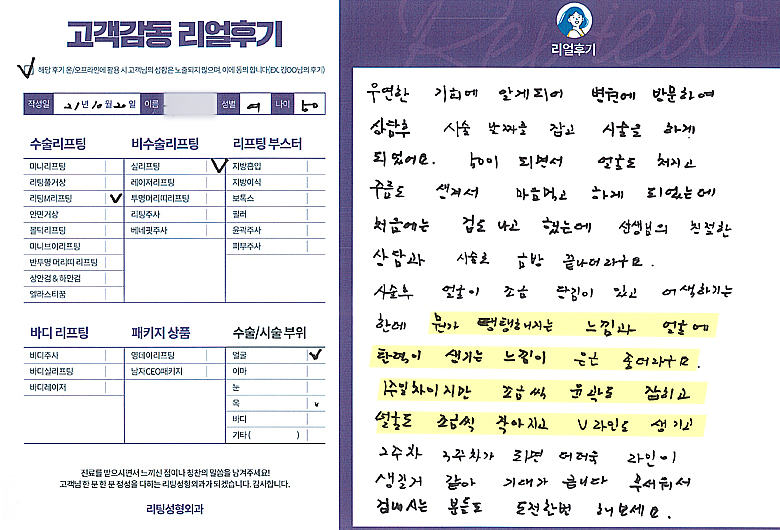 고객감동 리얼후기
해당 후기 온/오프라인에 활용 시 고객님의 성함은 노출되지 않으며, 이에 동의 합니다(EX. 김OO님의 후기)
작성일 21년 10월 20일 이름 성별 여 나이 50
수술리프팅
미니리프팅
리팅풀거상
리팅M리프팅
안면거상
볼턱리프팅
미니브이리프팅
반투명 머리띠 리프팅
상안검 & 하안검
엘라스티꿈
비수술리프팅
실리프팅
레이저리프팅
투명머리띠리프팅
리팅주사
베네핏주사
리프팅 부스터
지방흡입
지방이식
보톡스
필러
윤곽주사
피부주사
바디 리프팅
바디주사
바디실리프팅
바디레이저
패키지 상품
영데이리프팅
남자CEO패키지
수술/시술 부위
얼굴
이마
눈
목
바디
기타 ( )
진료를 받으시면서 느끼신 점이나 칭찬의 말씀을 남겨주세요!
고객님 한 분 한 분 정성을 다하는 리팅성형외과가 되겠습니다. 감사합니다.
리팅성형외과
Review
리얼후기
우연한 기회에 알게되어 병원에 방문하여
상담후 시술 날짜를 잡고 시술을 하게
되었어요. 50이 되면서 얼굴도 쳐지고
주름도 생겨서 마음먹고 하게 되었는데
처음에는 겁도 나고 했는데 선생님의 친절한
상담과 시술로 금방 끝나더라구요.
시술후 얼굴이 조금 당김이 있고 어색하기는
한데 뭔가 땡땡해지는 느낌과 얼굴에
탄력이 생기는 느낌이 은근 좋더라구요.
1주일차이지만 조금씩 윤곽도 잡히고
얼굴도 조금씩 작아지고 V라인도 생기고
2주차 3주차가 되면 더더욱 라인이
생길거 같아 기대가 됩니다 무서워서
겁내시는 분들도 도전한번 해보세요.